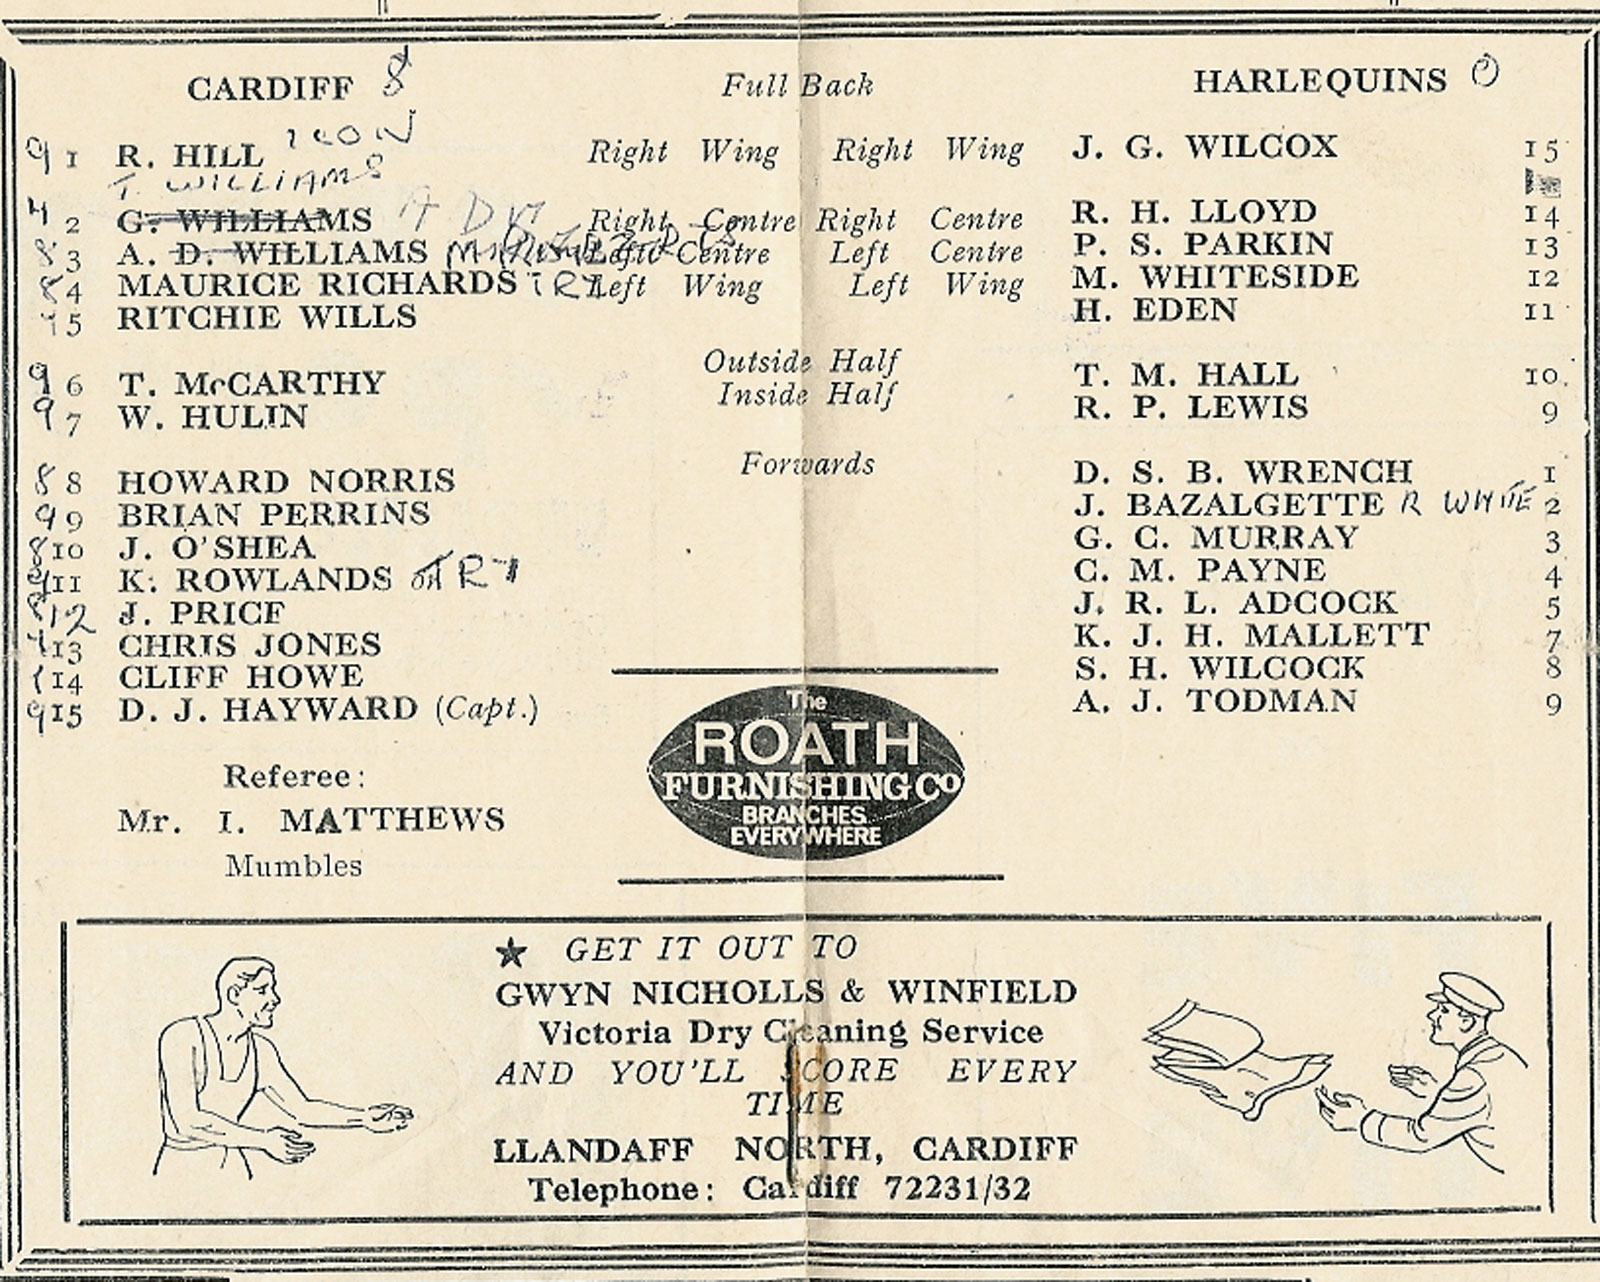 CARDIFF 8 Full Back HARLEQUINS 0
9 1 R. HILL 1 CON Right Wing Right Wing J. G. WILCOX 15
T. WILLIAMS
4 2 G. WILLIAMS Right Centre Right Centre R. H. LLOYD 14
8 3 A. D. WILLIAMS Left Centre Left Centre P. S. PARKIN 13
8 4 MAURICE RICHARDS TRY Left Wing Left Wing M. WHITESIDE 12
5 RITCHIE WILLS H. EDEN 11
Outside Half
9 6 T. McCARTHY T. M. HALL 10
Inside Half
9 7 W. HULIN R. P. LEWIS 9
Forwards
8 8 HOWARD NORRIS D. S. B. WRENCH 1
9 9 BRIAN PERRINS J. BAZALGETTE R WHITE 2
8 10 J. O'SHEA G. C. MURRAY 3
9 11 K. ROWLANDS TRY C. M. PAYNE 4
8 12 J. PRICE J. R. L. ADCOCK 5
13 CHRIS JONES K. J. H. MALLETT 7
14 CLIFF HOWE S. H. WILCOCK 8
9 15 D. J. HAYWARD (Capt.) A. J. TODMAN 9
Referee:
Mr. I. MATTHEWS
Mumbles
The
ROATH
FURNISHING CO
BRANCHES
EVERYWHERE
★ GET IT OUT TO
GWYN NICHOLLS & WINFIELD
Victoria Dry Cleaning Service
AND YOU'LL SCORE EVERY
TIME
LLANDAFF NORTH, CARDIFF
Telephone: Cardiff 72231/32